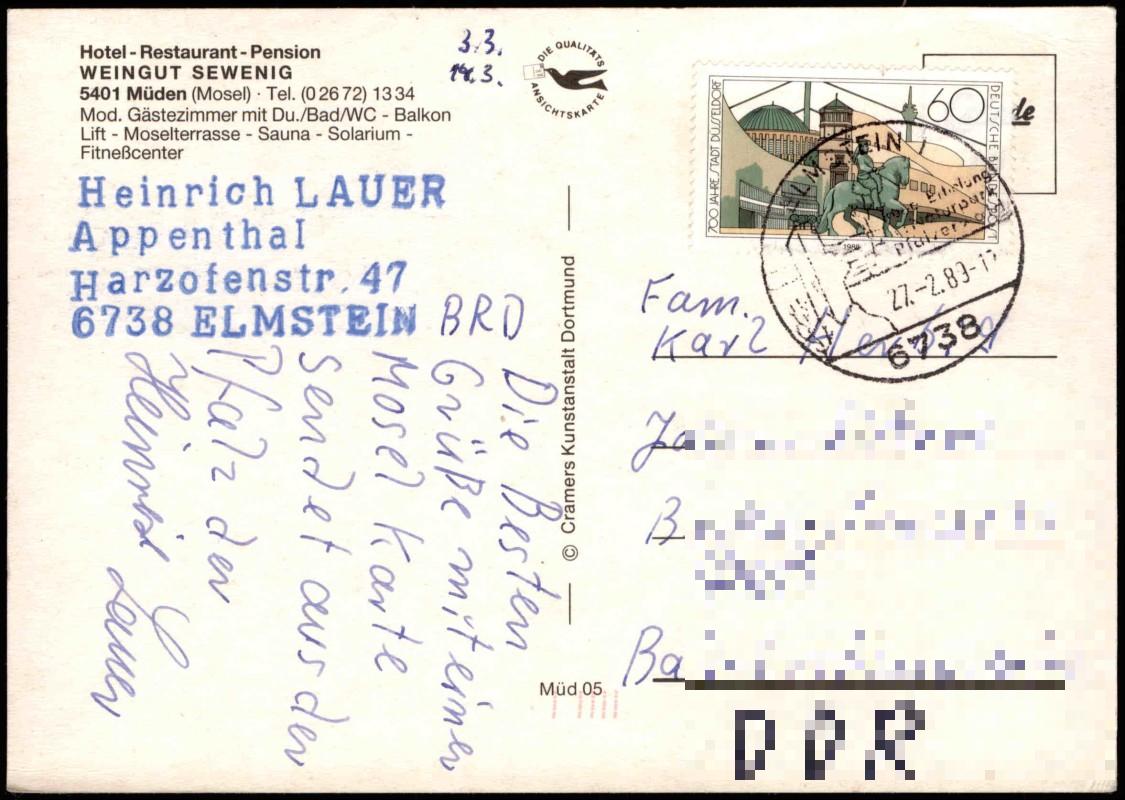 Hotel - Restaurant - Pension
WEINGUT SEWENIG
5401 Müden (Mosel) · Tel. (0 26 72) 13 34
Mod. Gästezimmer mit Du./Bad/WC - Balkon
Lift - Moselterrasse - Sauna - Solarium -
Fitneßcenter
3.3.
14.3.
DIE QUALITÄTS
ANSICHTSKARTE
Heinrich LAUER
Appenthal
Harzofenstr. 47
6738 ELMSTEIN BRD
Die Besten
Grüße mit einer
Mosel Karte
sendet aus der
Pfalz der
Heinrich Lauer
© Cramers Kunstanstalt Dortmund
Müd 05
700 JAHRE STADT DÜSSELDORF
60
DEUTSCHE BUNDESPOST
1988
ELMSTEIN 1
27.-2.89-17
6738
Fam.
Karl
DDR